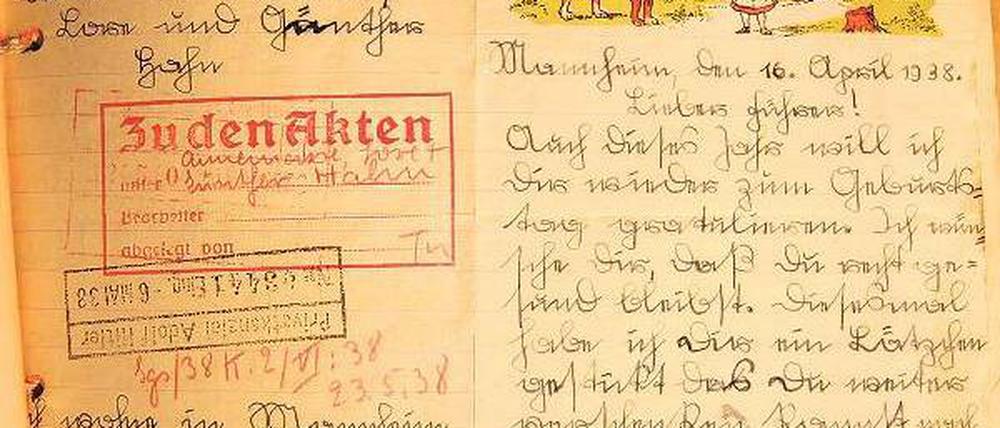 Lore und Günther
Hahn
Zu den Akten
unter Günther Hahn
Bearbeiter
abgelegt von
Privatkanzlei Adolf Hitler
Eing. - 6. MAI 38
/38 K. 2/VI. 38
23.5.38
wohne in Mannheim
Mannheim, den 16. April 1938.
Lieber Führer!
Auch dieses Jahr will ich
Dir wieder zum Geburts-
tag gratulieren. Ich wün
sche Dir, daß Du recht ge=
sund bleibst. Diesesmal
habe ich Dir ein Kätzchen
gestickt das Du weiter
verschenken kannst